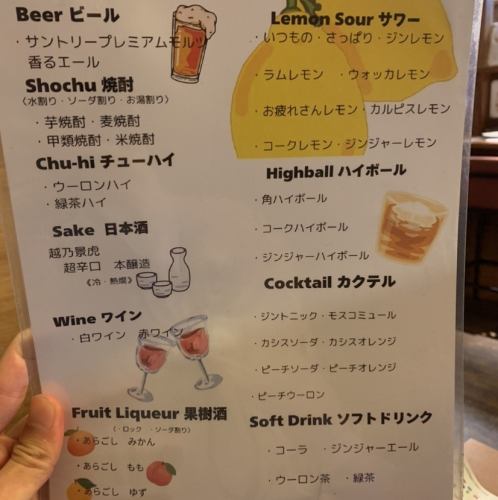 Beer ビール
・サントリープレミアムモルツ
香るエール
Shochu 焼酎
(水割り・ソーダ割り・お湯割り)
・芋焼酎・麦焼酎
・甲類焼酎・米焼酎
Chu-hi チューハイ
・ウーロンハイ
・緑茶ハイ
Sake 日本酒
越乃景虎
超辛口 本醸造
《冷・熱燗》
Wine ワイン
・白ワイン 赤ワイン
Fruit Liqueur 果樹酒
(・ロック ・ソーダ割り)
・あらごし みかん
・あらごし もも
・あらごし ゆず
Lemon Sour サワー
・いつもの・さっぱり・ジンレモン
・ラムレモン ・ウォッカレモン
・お疲れさんレモン・カルピスレモン
・コークレモン・ジンジャーレモン
Highball ハイボール
・角ハイボール
・コークハイボール
・ジンジャーハイボール
Cocktail カクテル
・ジントニック・モスコミュール
・カシスソーダ・カシスオレンジ
・ピーチソーダ・ピーチオレンジ
・ピーチウーロン
Soft Drink ソフトドリンク
・コーラ ・ジンジャーエール
・ウーロン茶 ・緑茶